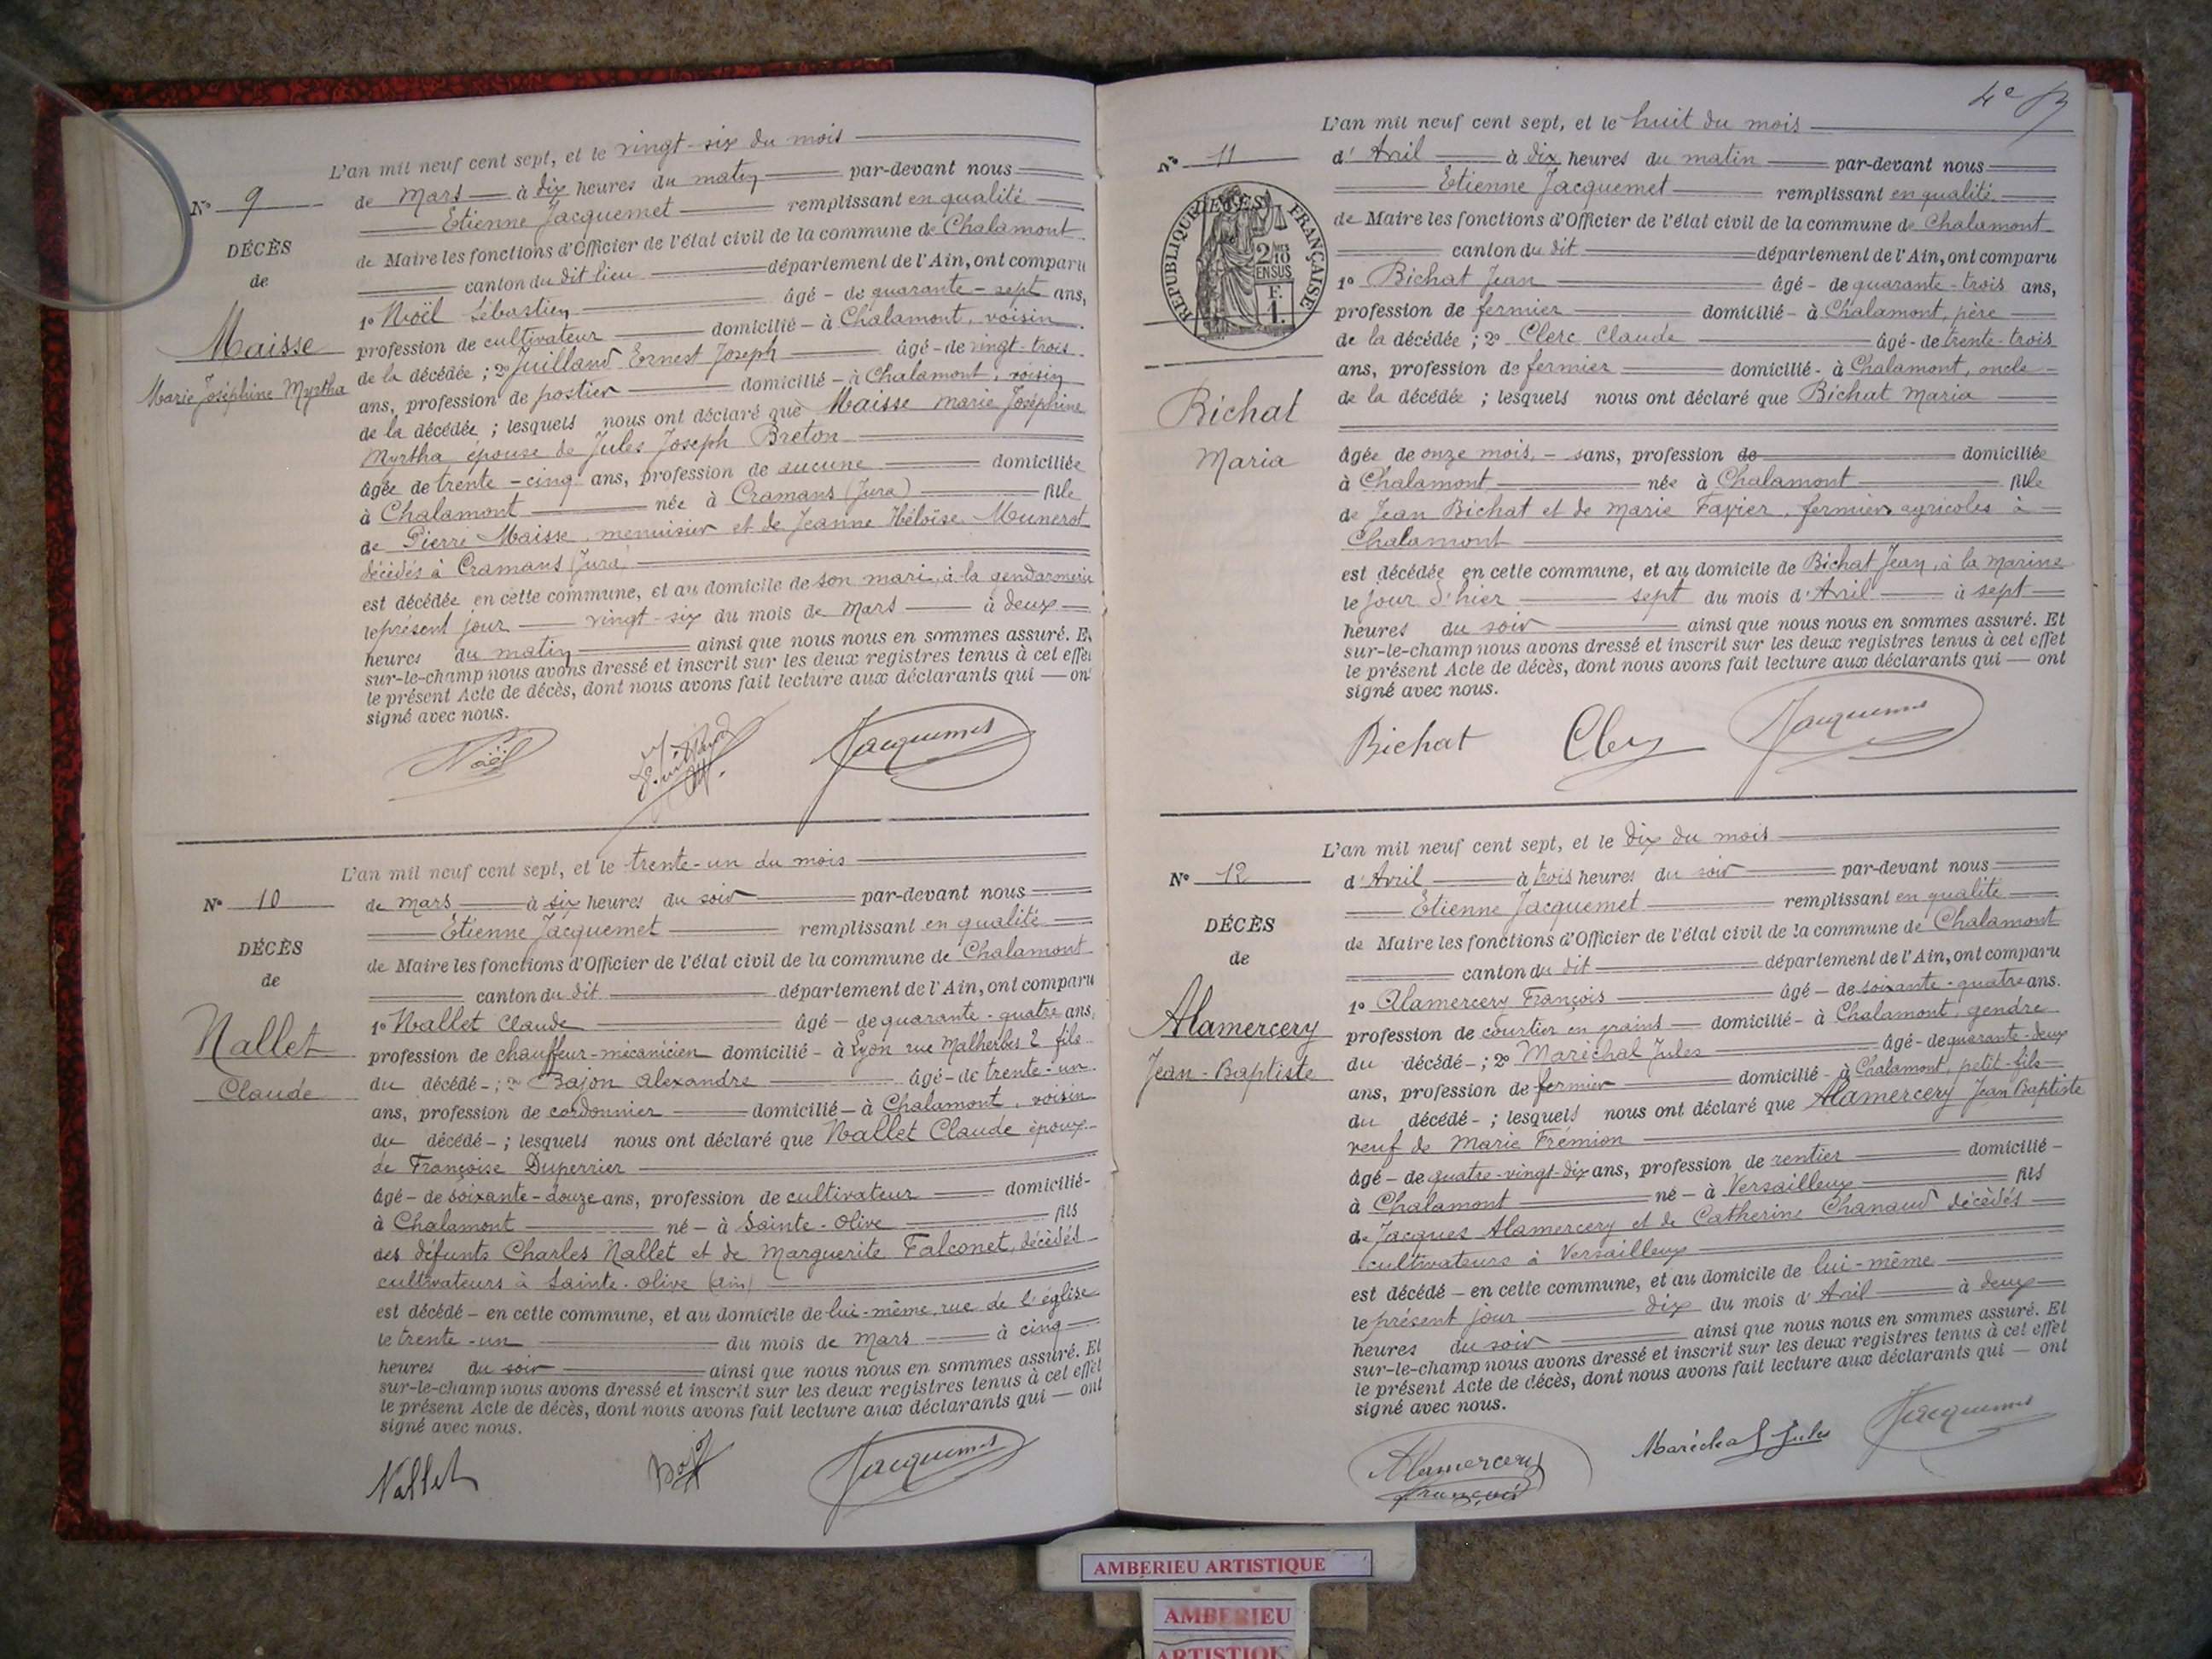 L'an mil neuf cent sept, et le vingt-six du mois
N° 9
de Mars à dix heures du matin par-devant nous
Etienne Jacquemet remplissant en qualité
DÉCÈS
de Maire les fonctions d'Officier de l'état civil de la commune de Chalamont
de
canton du dit lieu département de l'Ain, ont comparu
1° Noël Sébastien âgé - de quarante-sept ans,
Maisse
profession de cultivateur domicilié - à Chalamont, voisin
Marie Joséphine Myrtha
de la décédée ; 2° Juilland Ernest Joseph âgé - de vingt-trois
ans, profession de postier domicilié - à Chalamont, voisin
de la décédée ; lesquels nous ont déclaré que Maisse Marie Joséphine
Myrtha épouse de Jules Joseph Breton
âgée de trente-cinq ans, profession de aucune domiciliée
à Chalamont née à Cramans (Jura) fille
de Pierre Maisse, menuisier et de Jeanne Héloïse Munerot
décédés à Cramans (Jura)
est décédée en cette commune, et au domicile de son mari, à la gendarmerie
le présent jour vingt-six du mois de Mars à deux
heures du matin ainsi que nous nous en sommes assuré. Et
sur-le-champ nous avons dressé et inscrit sur les deux registres tenus à cet effet
le présent Acte de décès, dont nous avons fait lecture aux déclarants qui — ont
signé avec nous.
Noël Juilland Jacquemet
L'an mil neuf cent sept, et le trente-un du mois
N° 10
de Mars à six heures du soir par-devant nous
Etienne Jacquemet remplissant en qualité
DÉCÈS
de Maire les fonctions d'Officier de l'état civil de la commune de Chalamont
de
canton du dit département de l'Ain, ont comparu
1° Nallet Claude âgé - de quarante-quatre ans,
Nallet
profession de chauffeur-mécanicien domicilié - à Lyon rue Malherbes 2 fils
Claude
du décédé - ; 2° Bajon Alexandre âgé - de trente-un
ans, profession de cordonnier domicilié - à Chalamont, voisin
du décédé - ; lesquels nous ont déclaré que Nallet Claude époux
de Françoise Duperrier
âgé - de soixante-douze ans, profession de cultivateur domicilié -
à Chalamont né - à Sainte-Olive fils
des défunts Charles Nallet et de Marguerite Falconet, décédés
cultivateurs à Sainte-Olive (Ain)
est décédé - en cette commune, et au domicile de lui-même, rue de l'église
le trente-un du mois de Mars à cinq
heures du soir ainsi que nous nous en sommes assuré. Et
sur-le-champ nous avons dressé et inscrit sur les deux registres tenus à cet effet
le présent Acte de décès, dont nous avons fait lecture aux déclarants qui — ont
signé avec nous.
Nallet Jacquemet
4e
L'an mil neuf cent sept, et le huit du mois
N° 11
d'Avril à dix heures du matin par-devant nous
Etienne Jacquemet remplissant en qualité
RÉPUBLIQUE FRANÇAISE
2/10 EN SUS
F. 1.
de Maire les fonctions d'Officier de l'état civil de la commune de Chalamont
canton du dit département de l'Ain, ont comparu
1° Bichat Jean âgé - de quarante-trois ans,
profession de fermier domicilié - à Chalamont, père
de la décédée ; 2° Clerc Claude âgé - de trente-trois
ans, profession de fermier domicilié - à Chalamont, oncle
Bichat
de la décédée ; lesquels nous ont déclaré que Bichat Maria
Maria
âgée de onze mois, - sans, profession de domiciliée
à Chalamont née à Chalamont fille
de Jean Bichat et de Marie Favier, fermiers agricoles à
Chalamont
est décédée en cette commune, et au domicile de Bichat Jean, à la Marine
le jour d'hier sept du mois d'Avril à sept
heures du soir ainsi que nous nous en sommes assuré. Et
sur-le-champ nous avons dressé et inscrit sur les deux registres tenus à cet effet
le présent Acte de décès, dont nous avons fait lecture aux déclarants qui — ont
signé avec nous.
Bichat Clerc Jacquemet
L'an mil neuf cent sept, et le dix du mois
N° 12
d'Avril à trois heures du soir par-devant nous
Etienne Jacquemet remplissant en qualité
DÉCÈS
de Maire les fonctions d'Officier de l'état civil de la commune de Chalamont
de
canton du dit département de l'Ain, ont comparu
1° Alamercery François âgé - de soixante-quatre ans.
Alamercery
profession de courtier en grains domicilié - à Chalamont, gendre
Jean-Baptiste
du décédé - ; 2° Maréchal Jules âgé - de quarante-deux
ans, profession de fermier domicilié - à Chalamont, petit-fils
du décédé - ; lesquels nous ont déclaré que Alamercery Jean Baptiste
veuf de Marie Frémion
âgé - de quatre-vingt-dix ans, profession de rentier domicilié -
à Chalamont né - à Versailleux fils
de Jacques Alamercery et de Catherine Chanaud décédés
cultivateurs à Versailleux
est décédé - en cette commune, et au domicile de lui-même
le présent jour dix du mois d'Avril à deux
heures du soir ainsi que nous nous en sommes assuré. Et
sur-le-champ nous avons dressé et inscrit sur les deux registres tenus à cet effet
le présent Acte de décès, dont nous avons fait lecture aux déclarants qui — ont
signé avec nous.
Alamercery François Maréchal Jules Jacquemet
AMBERIEU ARTISTIQUE
AMBERIEU
ARTISTIQUE